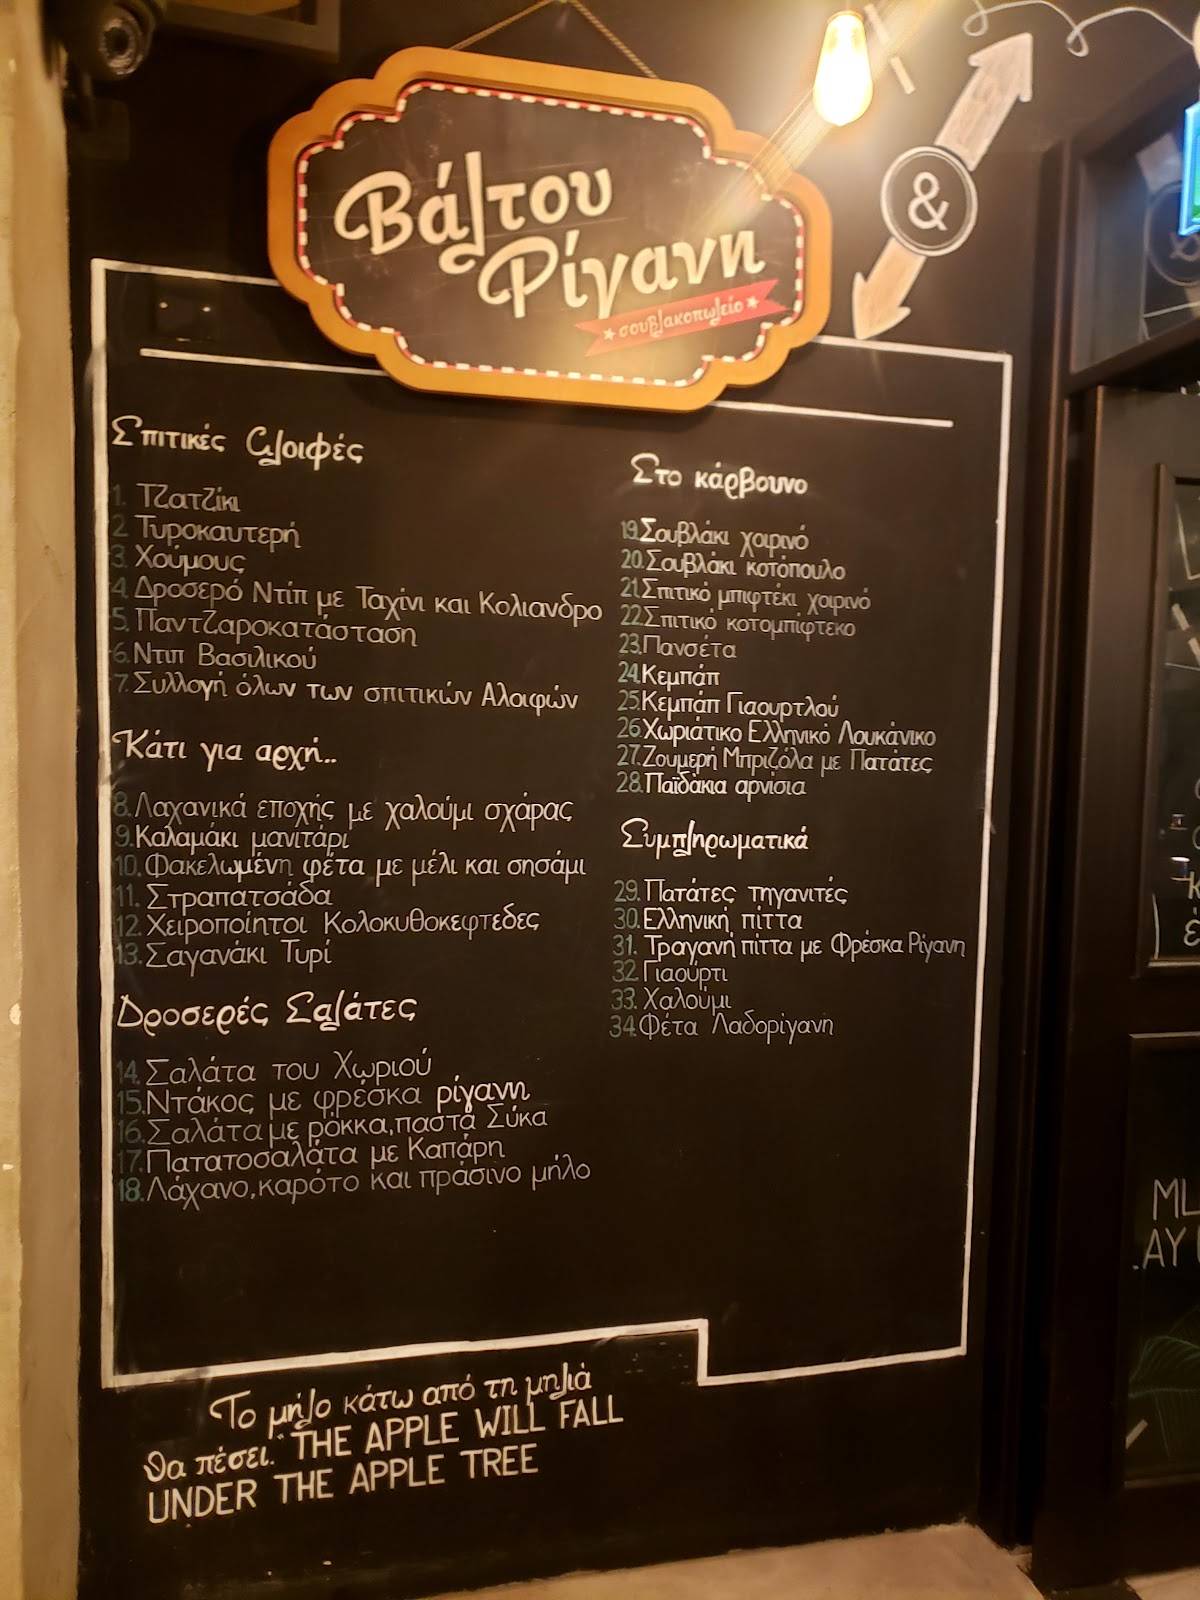 Βάλτου
Ρίγανη
σουβλακοπωλείο
&
Σπιτικές Αλοιφές
1. Τζατζίκι
2 Τυροκαυτερή
3. Χούμους
4. Δροσερό Ντίπ με Ταχίνι και Κολιανδρο
5. Παντζαροκατάσταση
6. Ντιπ Βασιλικού
7. Συλλογή όλων των σπιτικών Αλοιφών
Κάτι για αρχή..
8. Λαχανικά εποχής με χαλούμι σχάρας
9. Καλαμάκι μανιτάρι
10. Φακελωμένη φέτα με μέλι και σησάμι
11. Στραπατσάδα
12. Χειροποίητοι Κολοκυθοκεφτεδες
13. Σαγανάκι Τυρί
Δροσερές Σαλάτες
14. Σαλάτα του Χωριού
15. Ντάκος με φρέσκα ρίγανη
16. Σαλάτα με ρόκκα, παστά Σύκα
17. Πατατοσαλάτα με Καπάρη
18. Λάχανο, καρότο και πράσινο μήλο
Στο κάρβουνο
19. Σουβλάκι χοιρινό
20. Σουβλάκι κοτόπουλο
21. Σπιτικό μπιφτέκι χοιρινό
22. Σπιτικό κοτομπίφτεκο
23. Πανσέτα
24. Κεμπάπ
25. Κεμπάπ Γιαουρτλού
26. Χωριάτικο Ελληνικό Λουκάνικο
27. Ζουμερή Μπριζόλα με Πατάτες
28. Παϊδάκια αρνίσια
Συμπληρωματικά
29. Πατάτες τηγανιτές
30. Ελληνική πίττα
31. Τραγανή πίττα με Φρέσκα Ρίγανη
32. Γιαούρτι
33. Χαλούμι
34. Φέτα Λαδορίγανη
Το μήλο κάτω από τη μηλιά
θα πέσει. THE APPLE WILL FALL
UNDER THE APPLE TREE